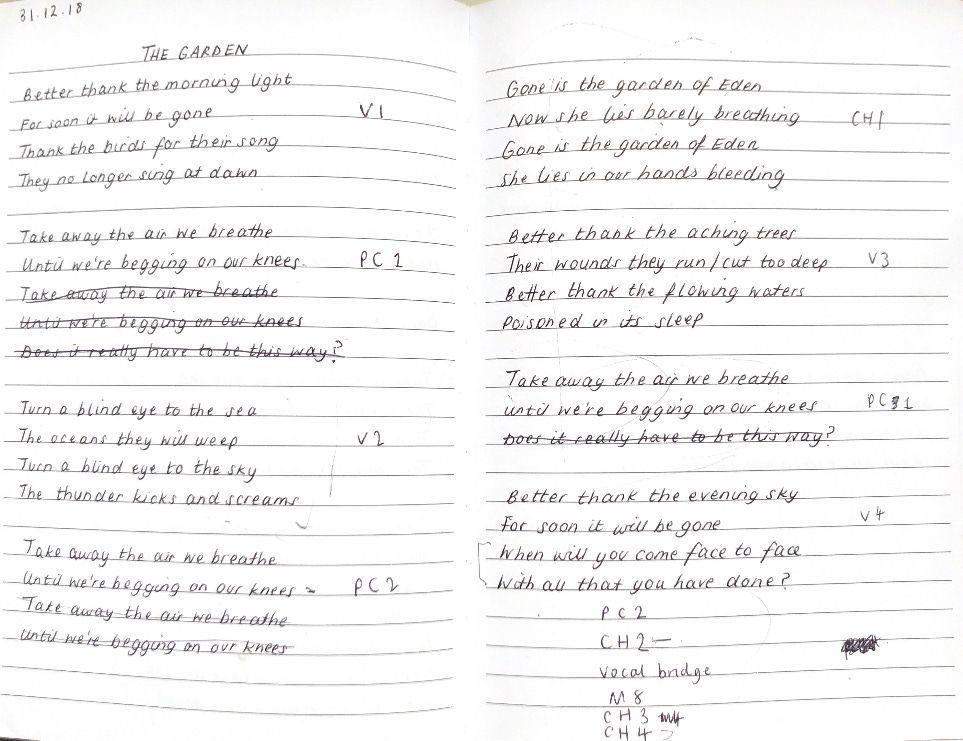 31.12.18
THE GARDEN
Better thank the morning light
For soon it will be gone
V1
Thank the birds for their song
They no longer sing at dawn
Take away the air we breathe
Until we're begging on our knees.
PC 1
Take away the air we breathe
Until we're begging on our knees
Does it really have to be this way?
Turn a blind eye to the sea
The oceans they will weep
V2
Turn a blind eye to the sky
The thunder kicks and screams
Take away the air we breathe
Until we're begging on our knees
PC2
Take away the air we breathe
Until we're begging on our knees
Gone is the garden of Eden
Now she lies barely breathing
CH1
Gone is the garden of Eden
She lies in our hands bleeding
Better thank the aching trees
Their wounds they run/cut too deep
V3
Better thank the flowing waters
Poisoned in its sleep
Take away the air we breathe
Until we're begging on our knees
PC 1
Does it really have to be this way?
Better thank the evening sky
For soon it will be gone
V4
When will you come face to face
With all that you have done?
PC2
CH2
Vocal bridge
M8
CH3
CH4